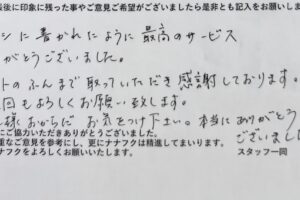 最後に印象に残った事やご意見ご希望がございましたら是非とも記入をお願いしま
シに書かれたように 最高のサービス
がとうございました。
トのふんまで取っていただき感謝しております。
回もよろしくお願い致します。
様 おからだ お気をつけ下さい。本当にありがとう
ございました
にご協力いただきありがとうございました。
重なご意見を参考にし、更にナナフクは精進してまいります。
ナフクをよろしくお願いいたします。 スタッフ一同